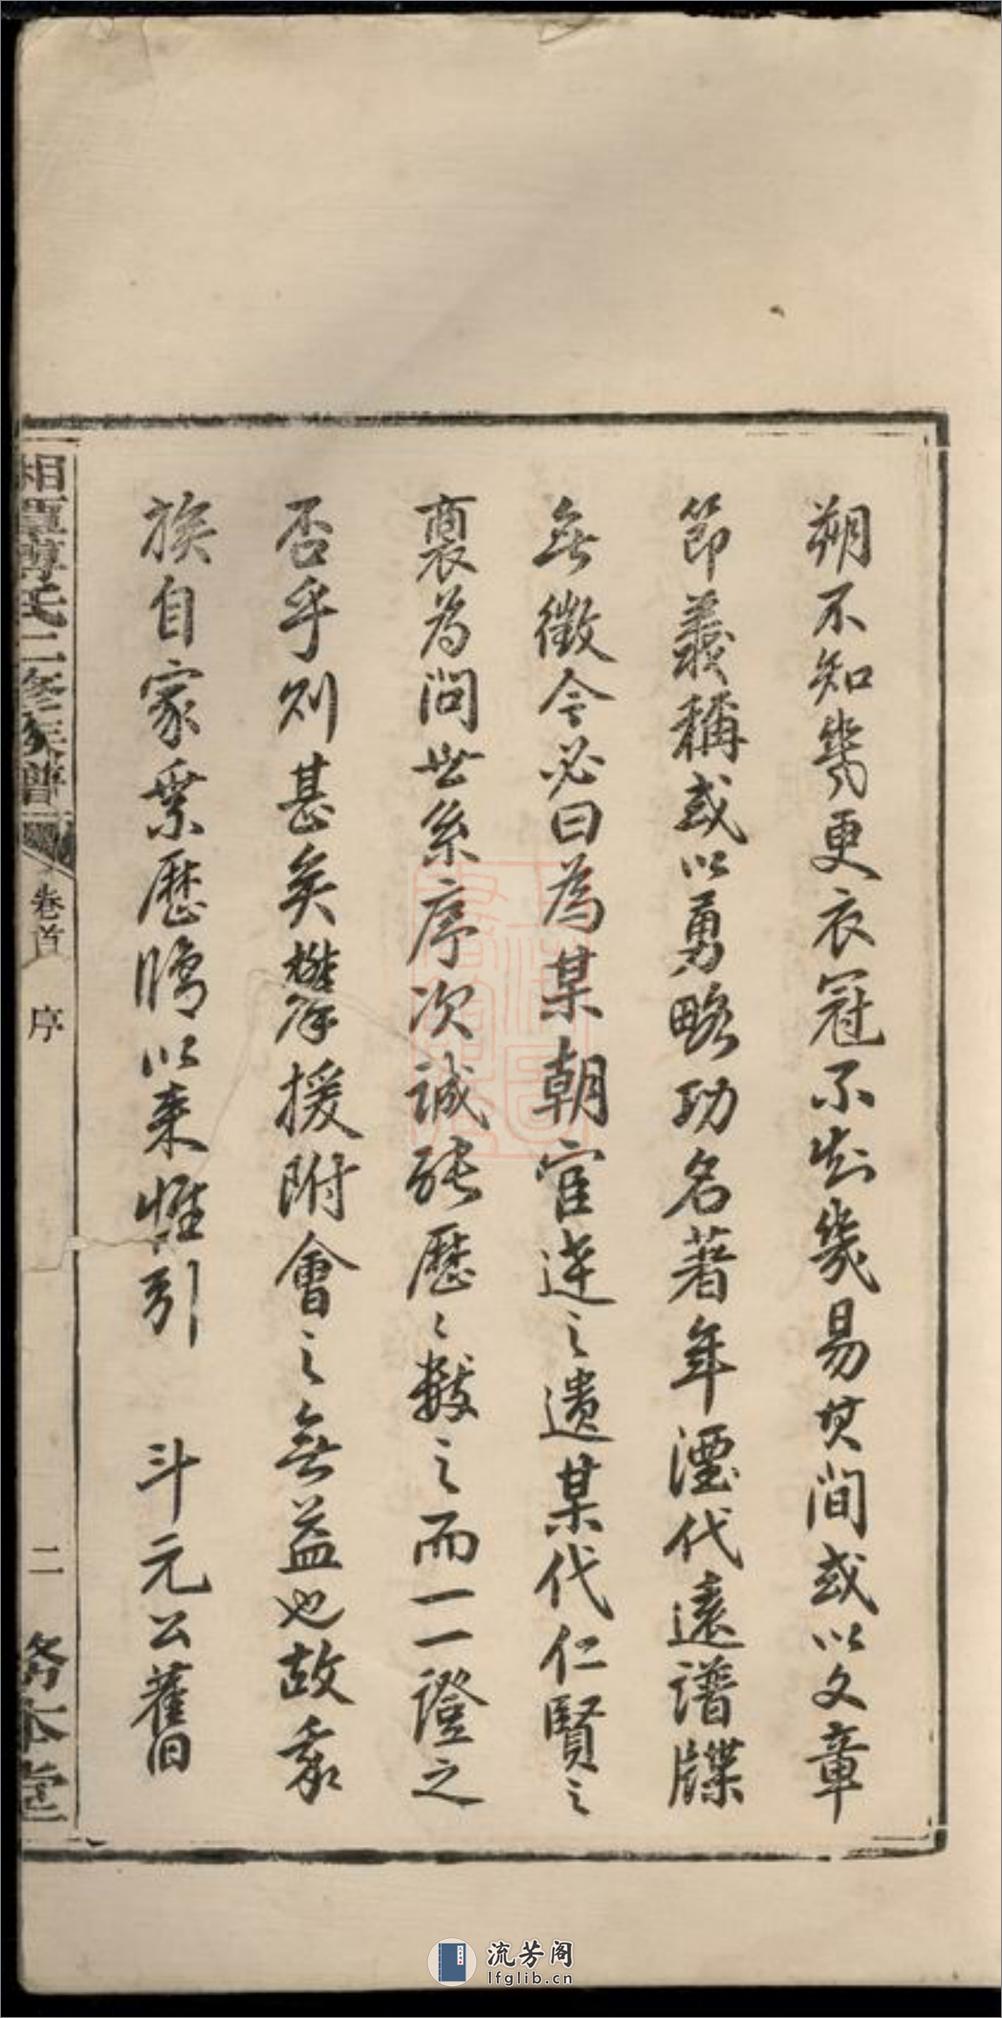 朔不知幾更衣冠不知幾易其間或以文章
節義稱或以勇略功名著年湮代遠譜牒
無徵今必曰為某朝官達之遺某代仁賢之
裔為問世系序次誠能歷々數之而一一證之
否乎則甚矣攀援附會之無益也故我
族自家業歷勝以來惟引 斗元公舊
氏二修族譜
卷首
序
二
務本堂
流芳阁
lfglib.cn